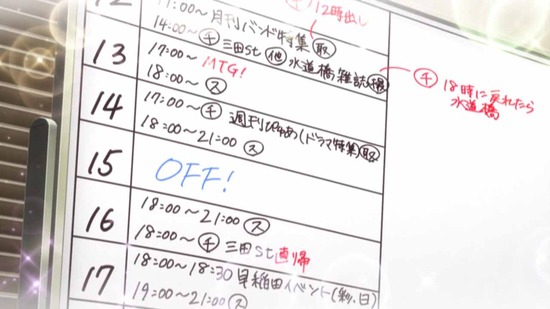 12
11:00～月刊バンド特集(取)
12時出し
13
14:00～(チ)三田st(他)水道橋雑誌(撮)
17:00～MTG!
18:00～(ス)
(チ)18時に戻れたら
水道橋
14
17:00～(チ)週刊ぴゅあ(ドラマ特集)(取)
18:00～21:00(ス)
15
OFF!
16
18:00～21:00(ス)
18:00～(チ)三田st直帰
17
18:00～18:30早稲田イベント(
19:00～21:00(ス)